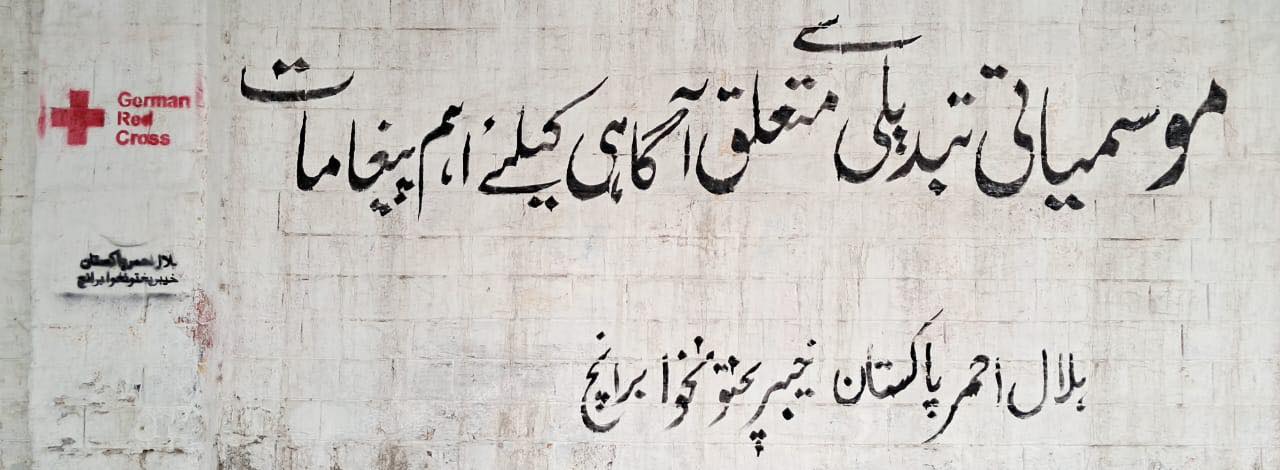 موسمیاتی تبدیلی سے متعلق آگاہی کیلئے اہم پیغامات
ہلال احمر پاکستان خیبر پختونخوا برانچ
German
Red
Cross
ہلال احمر پاکستان
خیبر پختونخوا برانچ